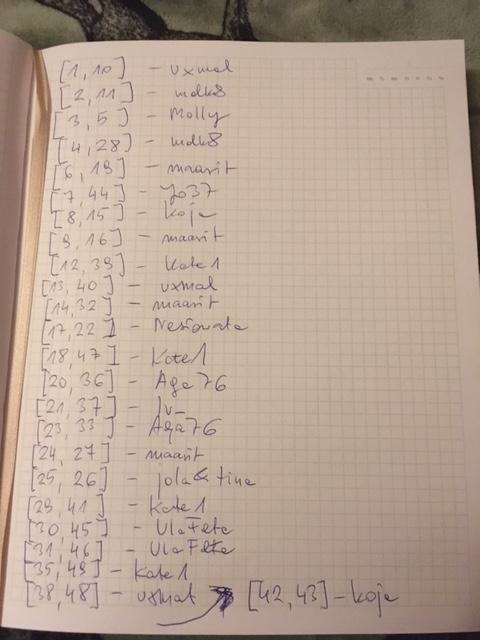 [1, 10] - uxmal
[2, 11] - mdk8
[3, 5] - Molly
[4, 28] - mdk8
[6, 19] - maarit
[7, 44] - Jo37
[8, 15] - koja
[9, 16] - maarit
[12, 39] - Kate1
[13, 40] - uxmal
[14, 32] - maarit
[17, 22] - Nesiowata
[18, 47] - Kate1
[20, 36] - Aga76
[21, 37] - Ju_
[23, 33] - Aga76
[24, 27] - maarit
[25, 26] - jola&tina
[29, 41] - Kate1
[30, 45] - UlaFeta
[31, 46] - UlaFeta
[35, 49] - Kate1
[38, 48] - uxmal [42, 43] - koja